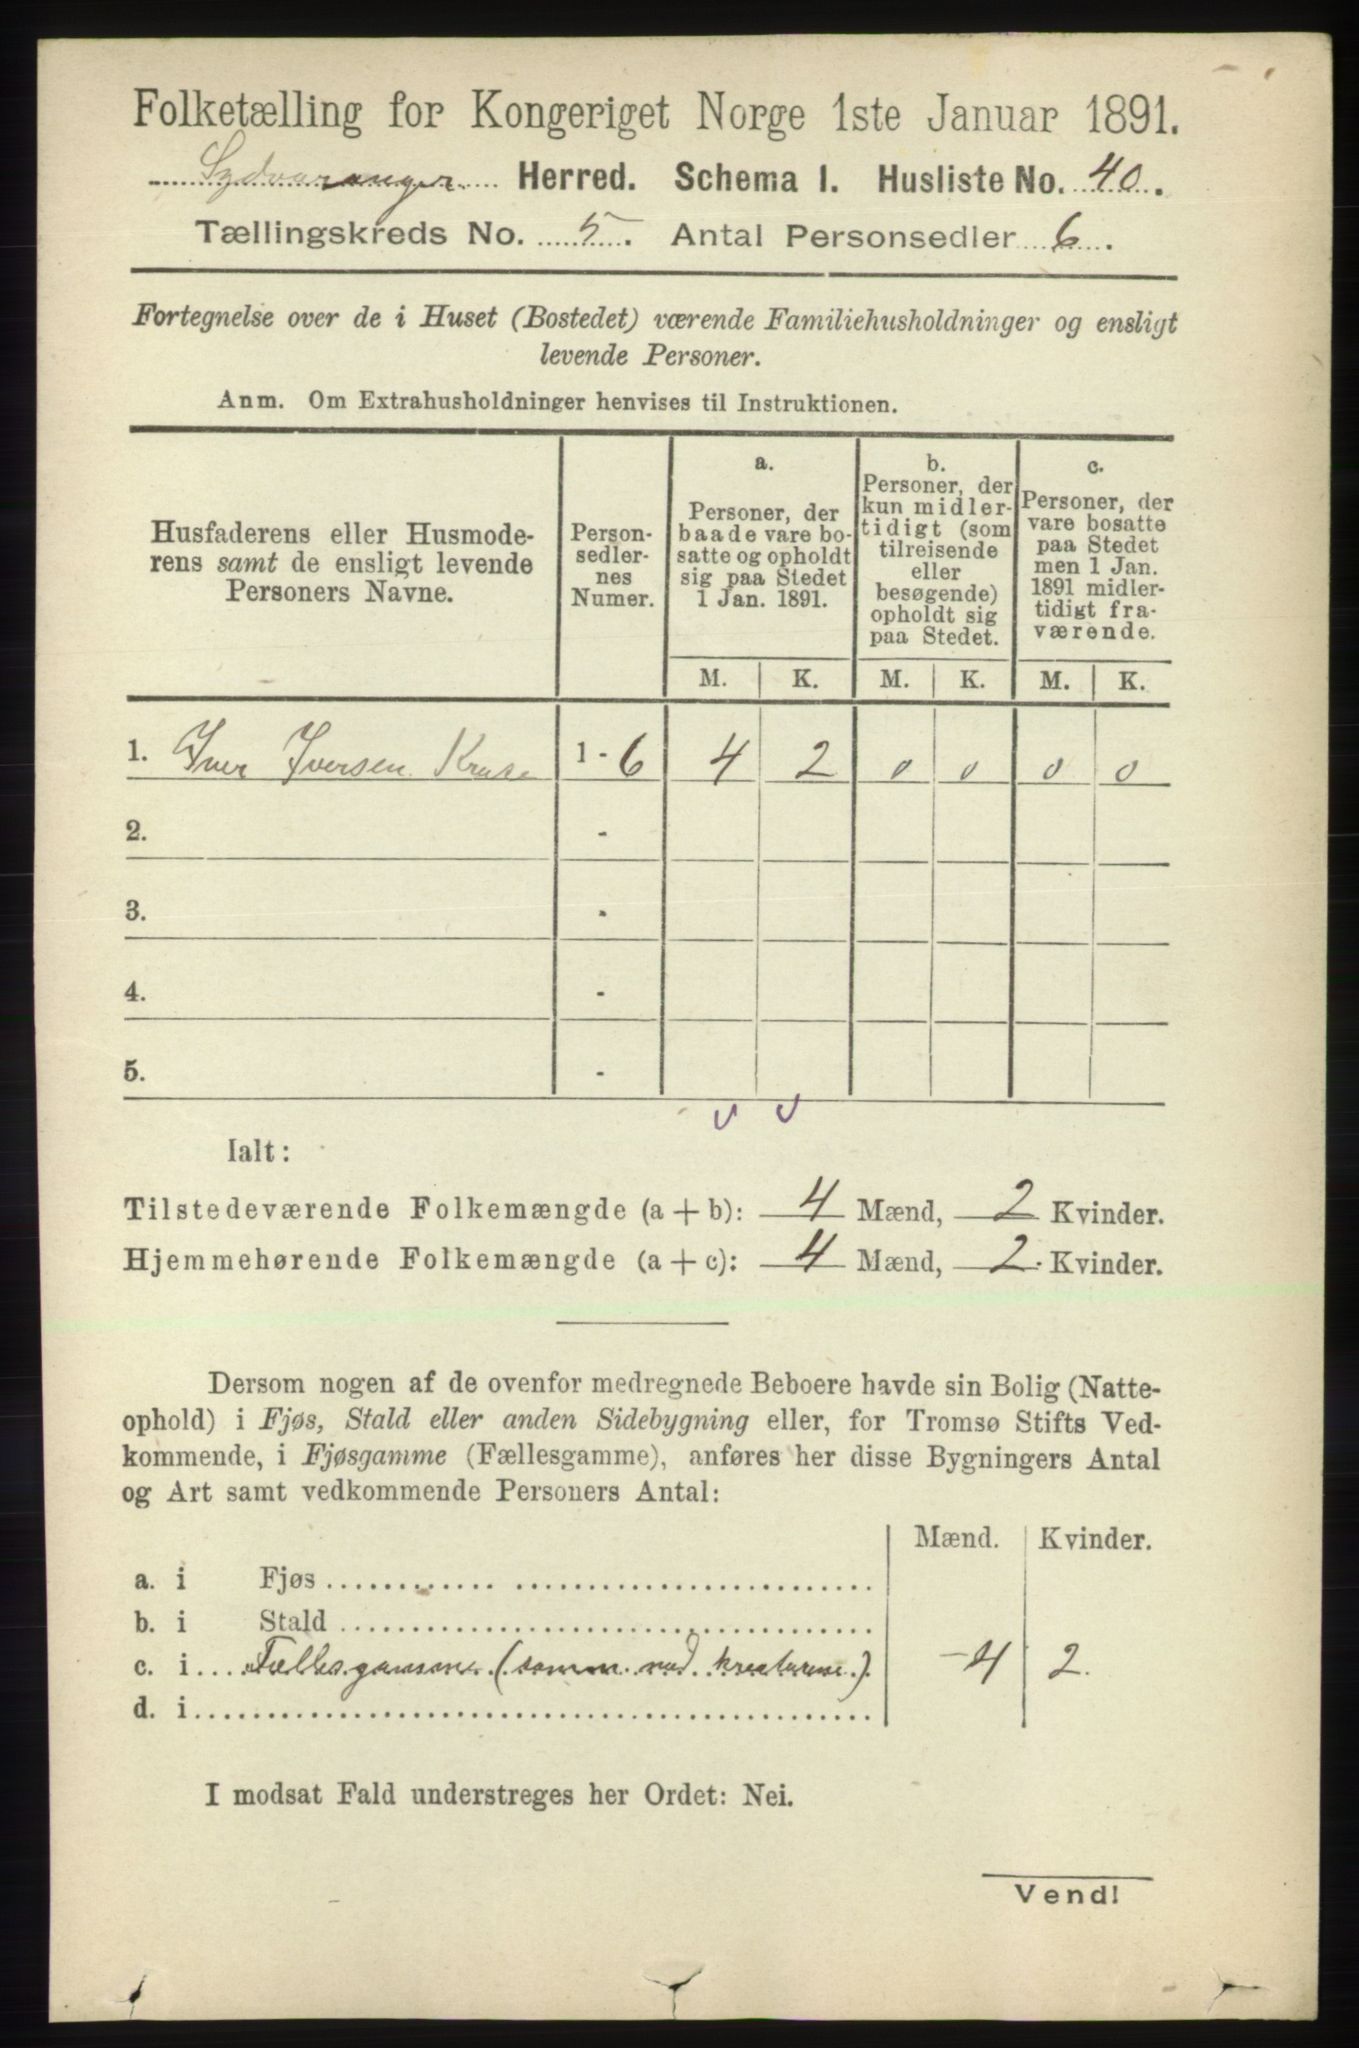 Folketælling for Kongeriget Norge 1ste Januar 1891.
Sydvaranger Herred. Schema 1. Husliste No. 40.
Tællingskreds No. 5. Antal Personsedler 6.
Fortegnelse over de i Huset (Bostedet) værende Familiehusholdninger og ensligt
levende Personer.
Anm. Om Extrahusholdninger henvises til Instruktionen.
Husfaderens eller Husmode-
rens samt de ensligt levende
Personers Navne.
Person-
sedler-
nes
Numer.
a.
Personer, der
baade vare bo-
satte og opholdt
sig paa Stedet
1 Jan. 1891.
b.
Personer, der
kun midler-
tidigt (som
tilreisende
eller
besøgende)
opholdt sig
paa Stedet.
c.
Personer, der
vare bosatte
paa Stedet
men 1 Jan.
1891 midler-
tidigt fra-
værende.
M. K. M. K. M. K.
1. Iver Iversen Kruse 1 - 6 4 2 0 0 0 0
2. -
3. -
4. -
5. -
Ialt:
Tilstedeværende Folkemængde (a + b): 4 Mænd, 2 Kvinder.
Hjemmehørende Folkemængde (a + c): 4 Mænd, 2 Kvinder.
Dersom nogen af de ovenfor medregnede Beboere havde sin Bolig (Natte-
ophold) i Fjøs, Stald eller anden Sidebygning eller, for Tromsø Stifts Ved-
kommende, i Fjøsgamme (Fællesgamme), anføres her disse Bygningers Antal
og Art samt vedkommende Personers Antal:
Mænd. Kvinder.
a. i Fjøs
b. i Stald
c. i Fællesgamme (samm. med kreaturene) 4 2.
d. i
I modsat Fald understreges her Ordet: Nei.
Vend!